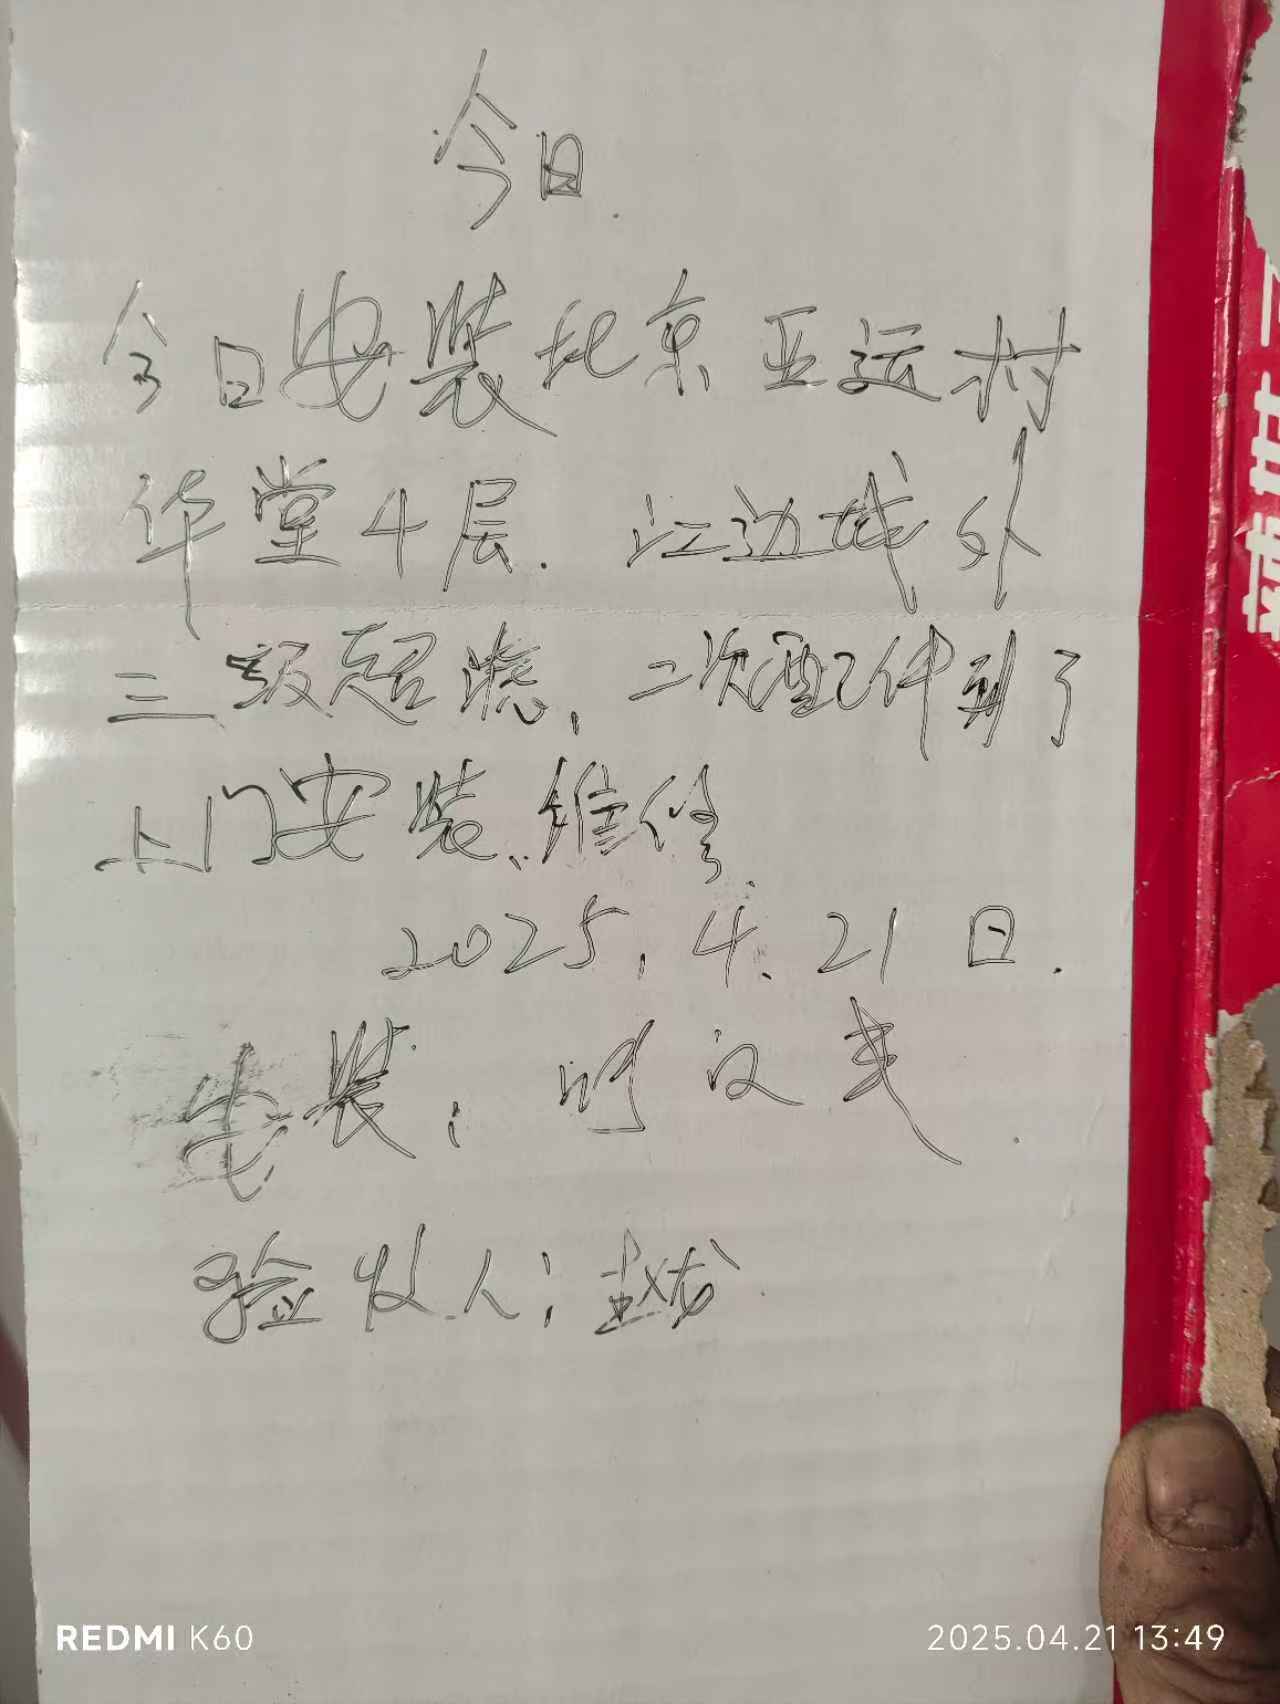 今日.
今日安装北京亚运村
华堂4层.江边城外
三级超滤,二次配件到了
上门安装、维修.
2025.4.21日.
安装:时文
验收人:赵龙
REDMI K60
2025.04.21 13:49